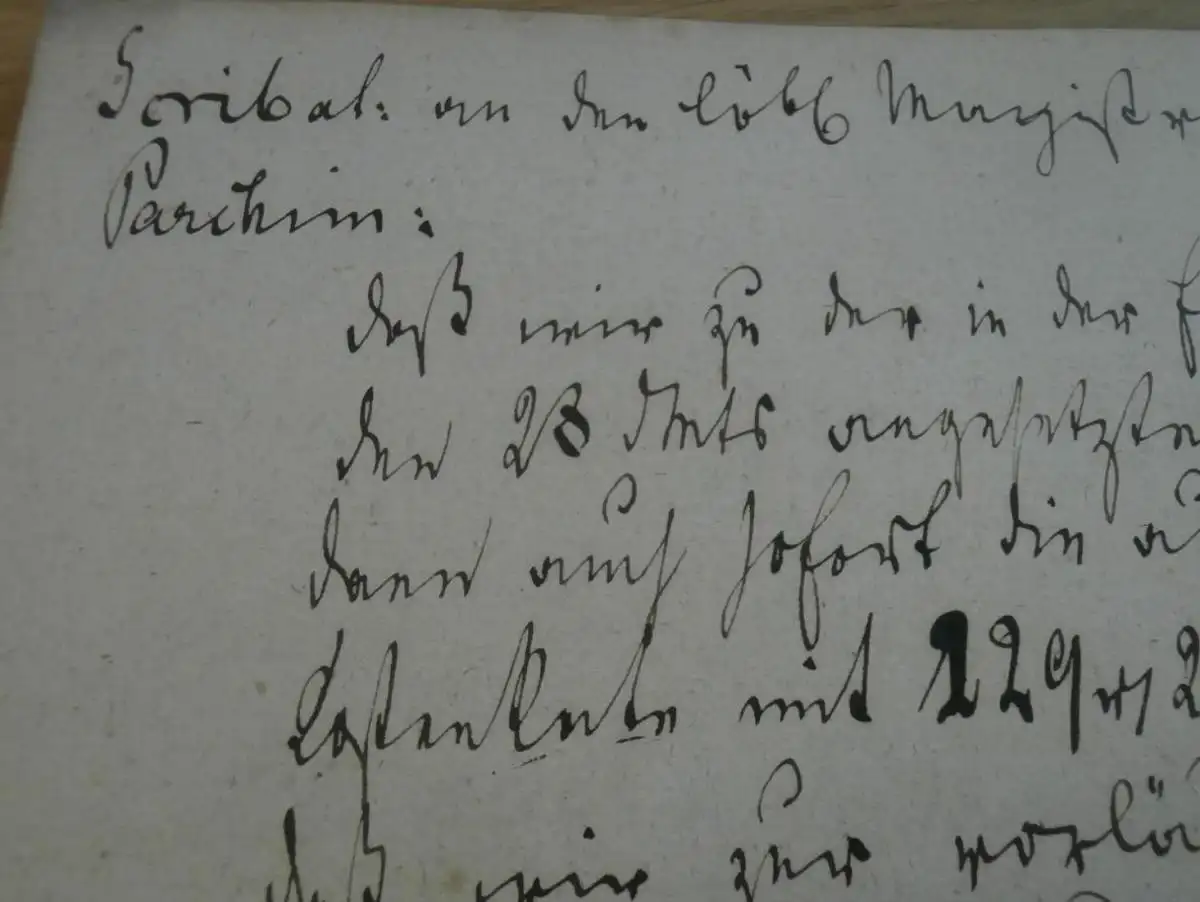 Scribat: an den löbl Magistr
Parchim:
daß wir zu der in der
den 28 d Mts angesetzten
dann auch sofort die au
Kostenrate mit 229 rℓ 2
daß wir zur vorlä